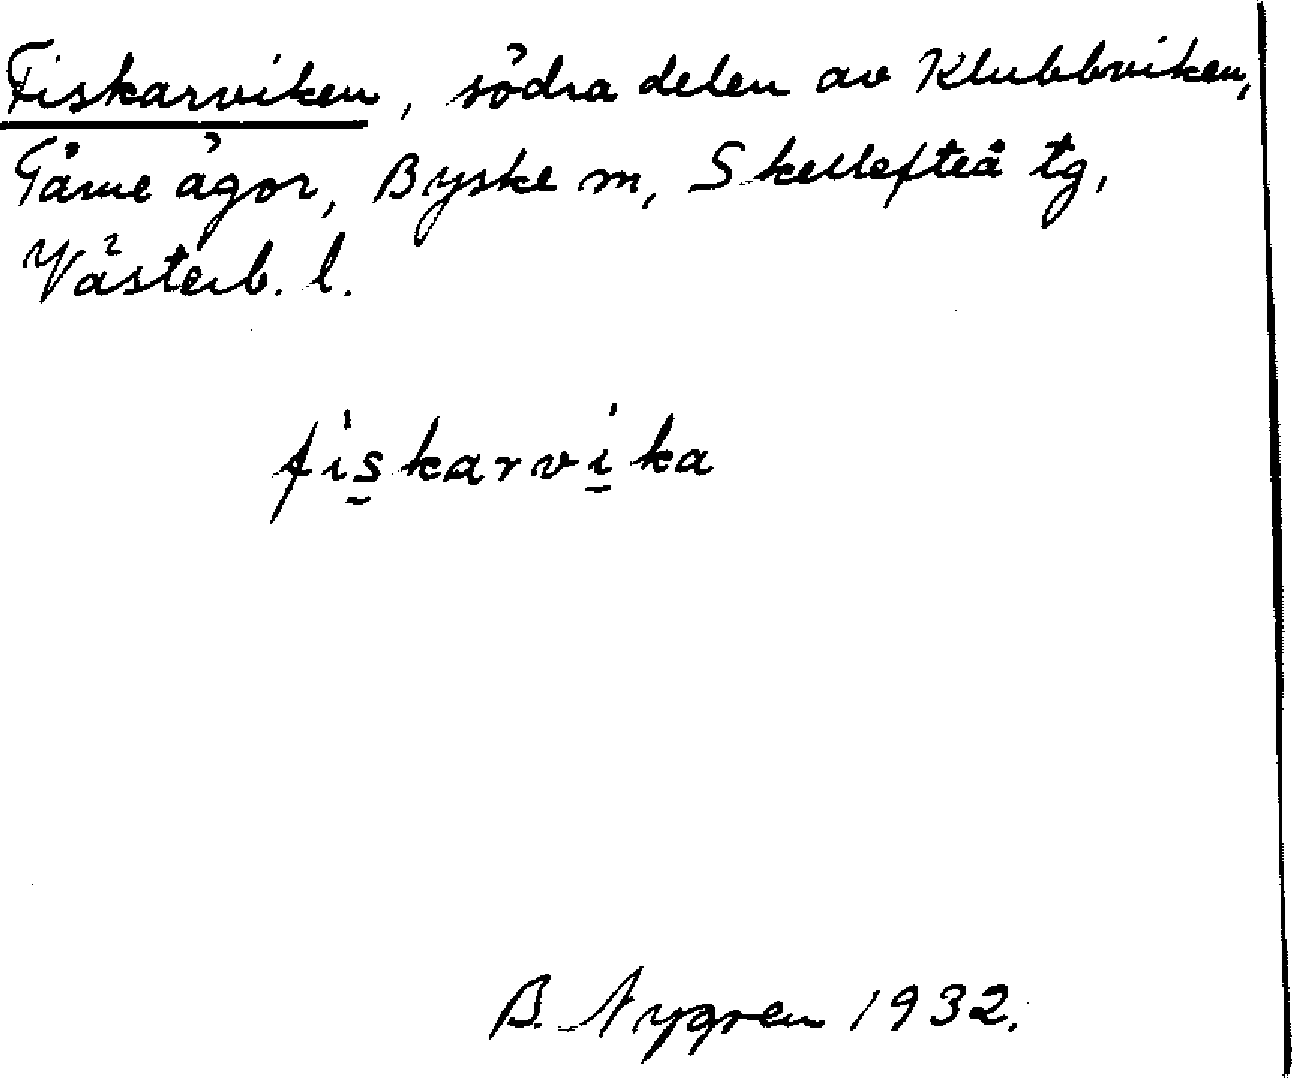 Fiskarviken, södra delen av Klubbviken,
Tåme ägor, Byske sn, Skellefteå tg,
Västerb. l.
fiskarvika
B. Nygren 1932.